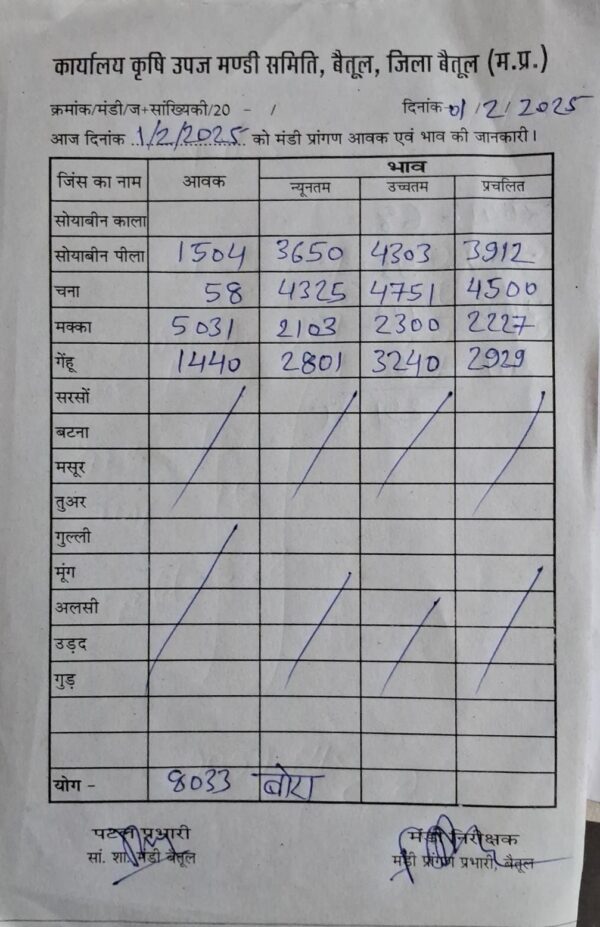 कार्यालय कृषि उपज मण्डी समिति, बैतूल, जिला बैतूल (म.प्र.)
क्रमांक/मंडी/ज+सांख्यिकी/20 - / दिनांक 01/2/2025
आज दिनांक 1/2/2025 को मंडी प्रांगण आवक एवं भाव की जानकारी।
जिंस का नाम आवक भाव
न्यूनतम उच्चतम प्रचलित
सोयाबीन काला
सोयाबीन पीला 1504 3650 4303 3912
चना 58 4325 4751 4500
मक्का 5031 2103 2300 2227
गेंहू 1440 2801 3240 2929
सरसों
बटना
मसूर
तुअर
गुल्ली
मूंग
अलसी
उड़द
गुड़
योग - 8033 बोरा
प्रभारी मंडी निरीक्षक
सां. शा. मंडी बैतूल मंडी प्रांगण प्रभारी, बैतूल